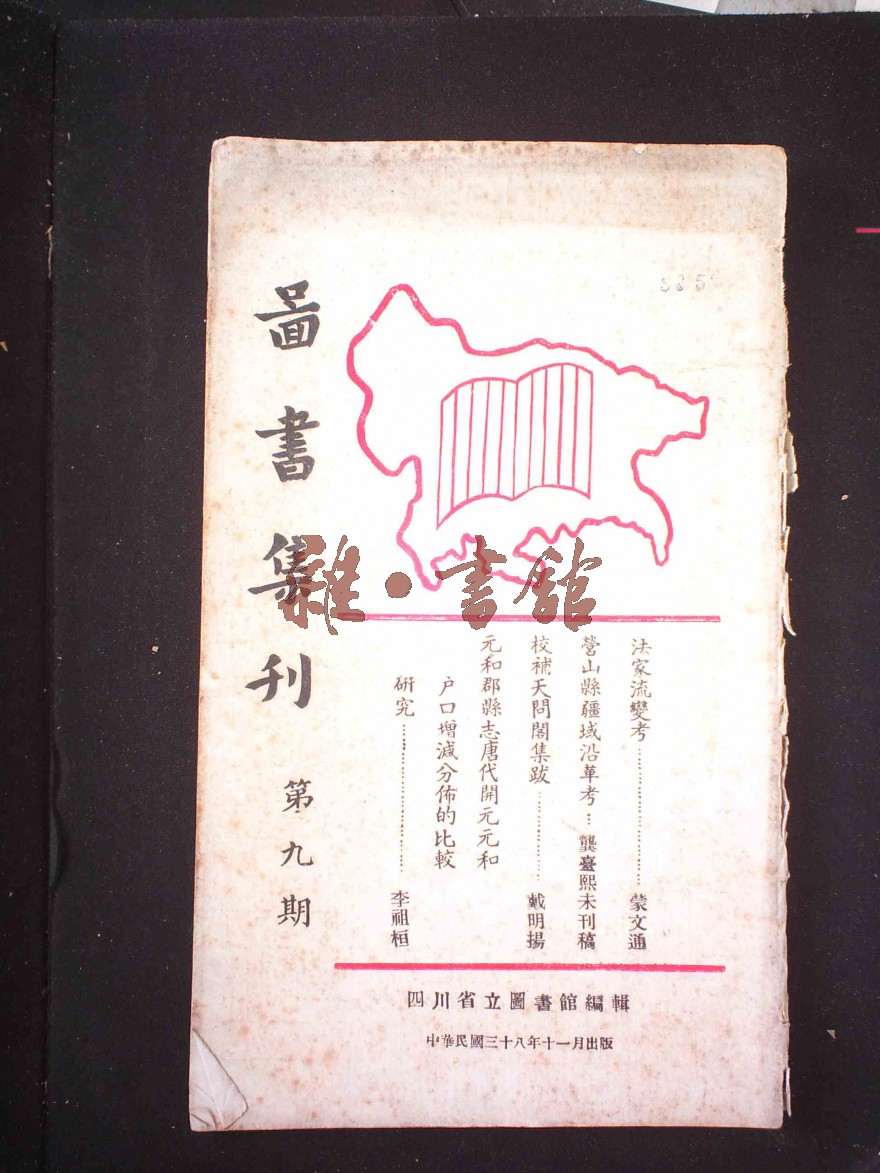 圖書集刊
第九期
法家流變考……………………蒙文通
營山縣疆域沿革考…龔臺熙未刊稿
校補天問閣集跋…………戴明揚
元和郡縣志唐代開元元和
戶口增減分佈的比較
研究……………………李祖桓
四川省立圖書館編輯
中華民國三十八年十一月出版
雜·書館